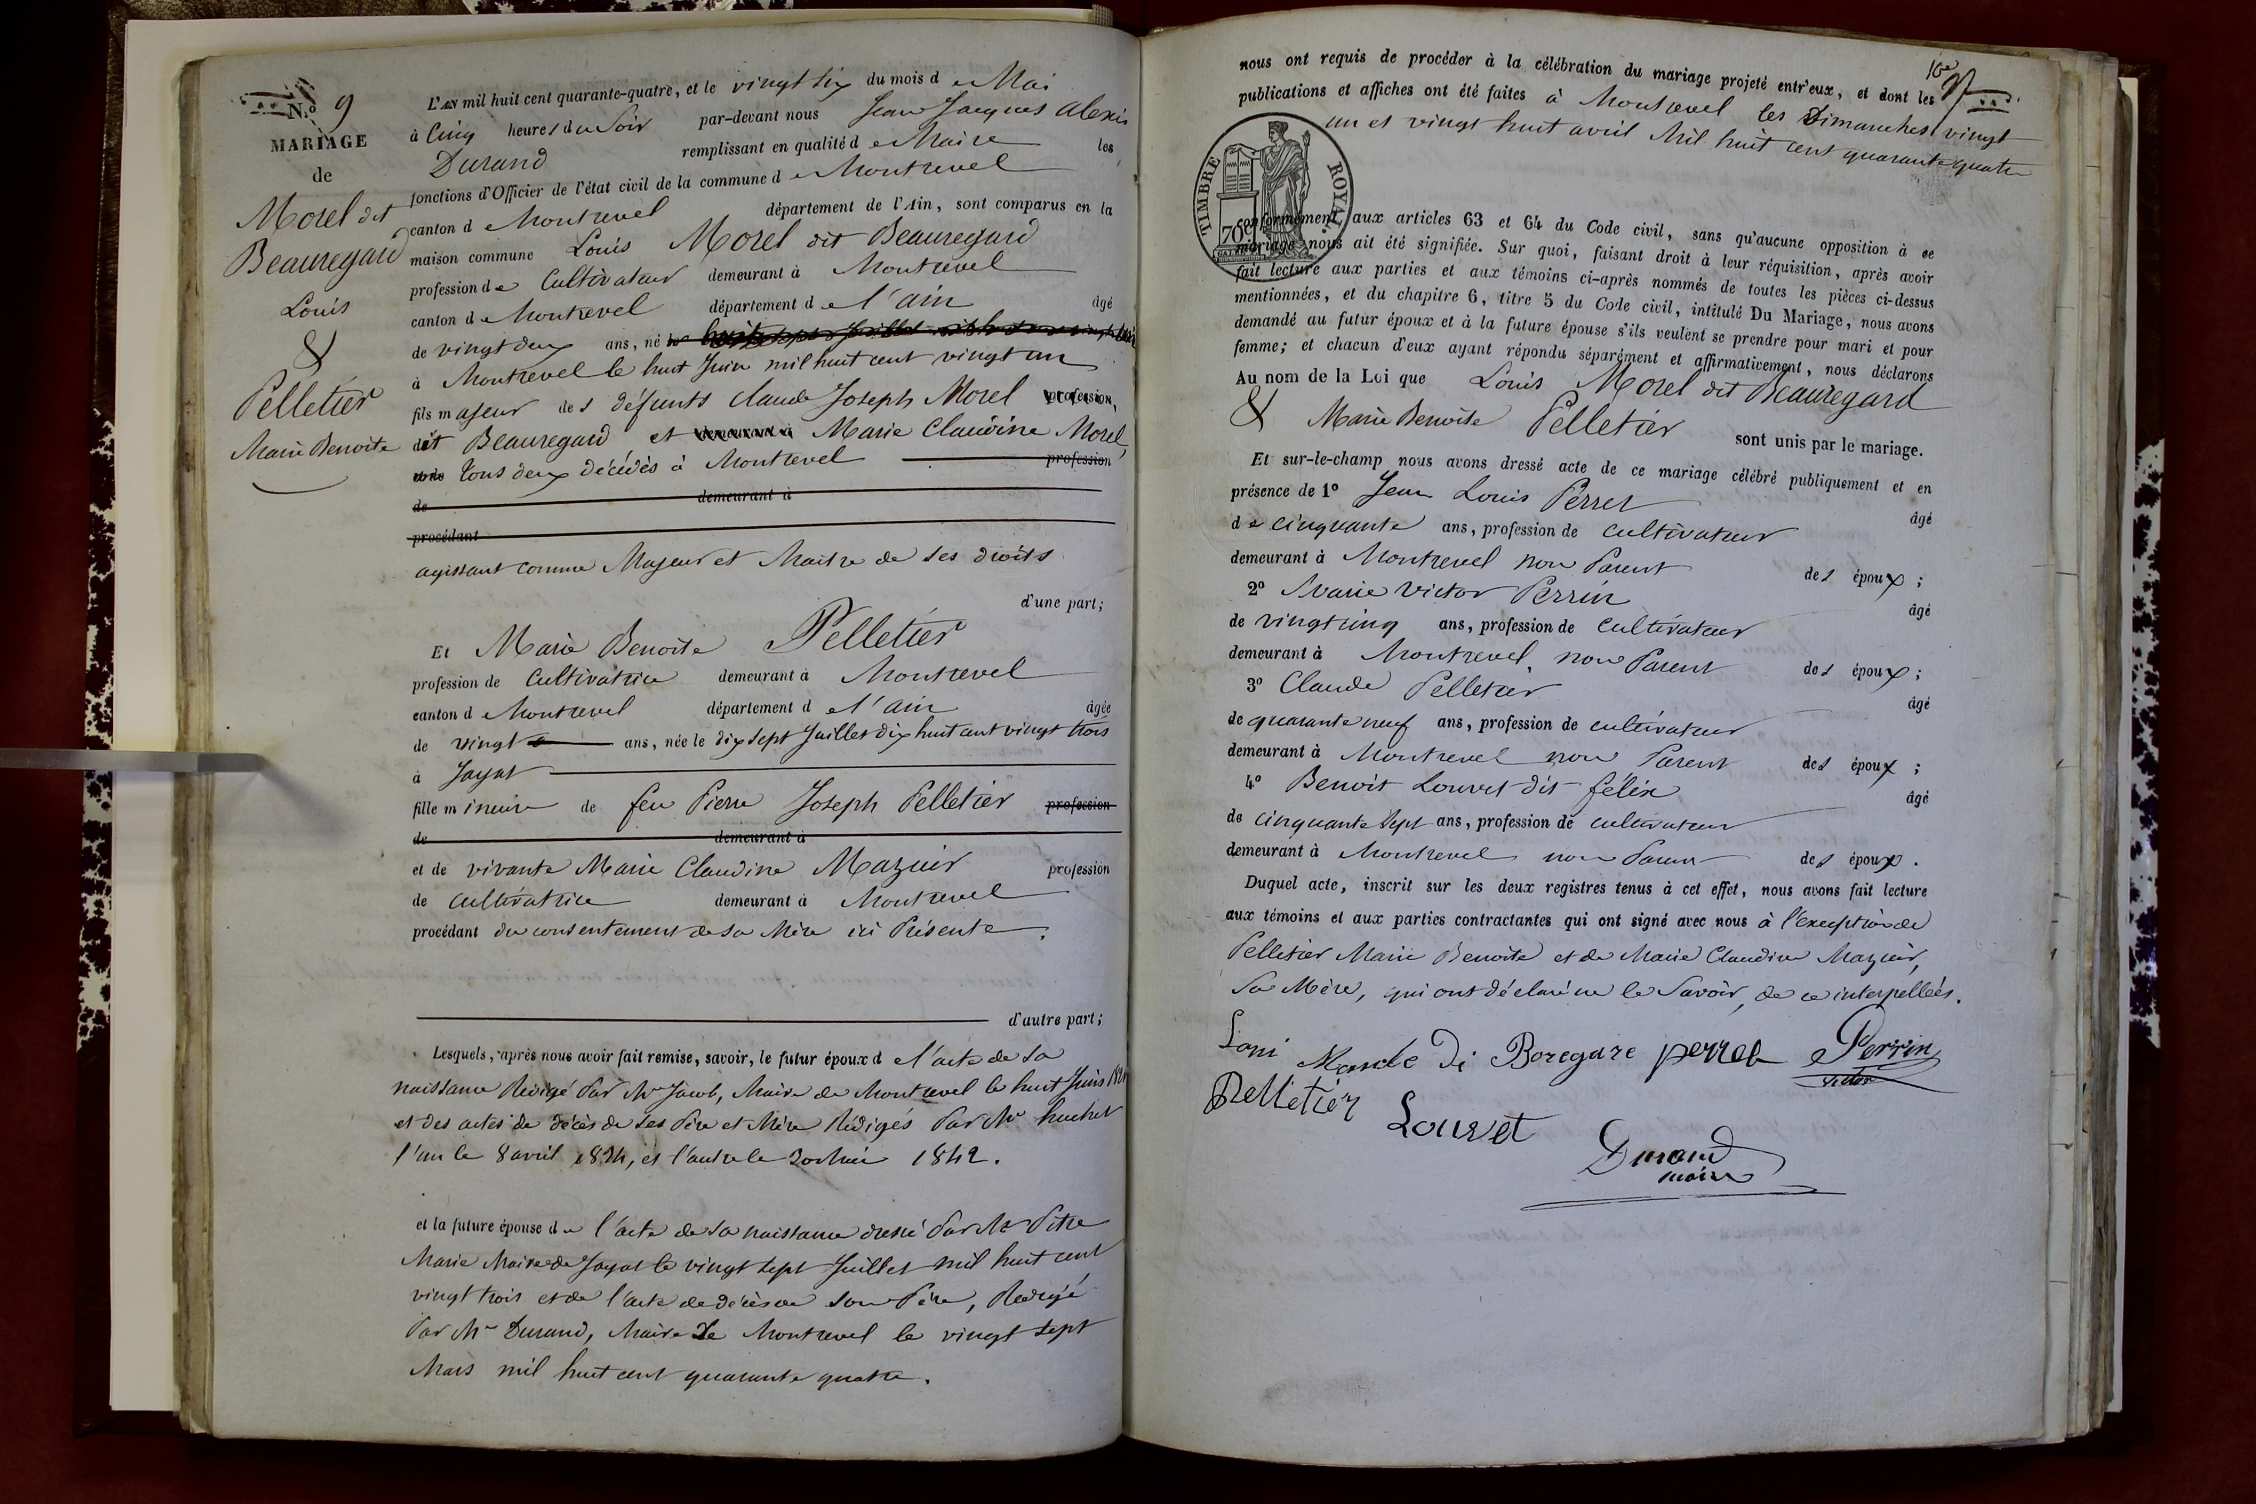 N.o 9
MARIAGE
de
Morel dit
Beauregard
Louis
&
Pelletier
Marie Benoite
L'AN mil huit cent quarante-quatre, et le vingt six du mois de Mai
à Cinq heures du Soir par-devant nous Jean Jacques Alexis
Durand remplissant en qualité de Maire les
fonctions d'Officier de l'état civil de la commune de Montrevel
canton de Montrevel département de l'Ain, sont comparus en la
maison commune Louis Morel dit Beauregard
profession de Cultivateur demeurant à Montrevel
canton de Montrevel département de l'ain âgé
de vingt deux ans, né le
à Montrevel le huit Juin mil huit cent vingt un
fils majeur des défunts Claude Joseph Morel profession,
dit Beauregard et demeurant à Marie Claudine Morel,
et de tous deux décédés à Montrevel profession
de demeurant à
procédant
agissant comme Majeur et Maitre de ses droits
d'une part;
Et Marie Benoite Pelletier
profession de Cultivatrice demeurant à Montrevel
canton de Montrevel département de l'ain âgée
de vingt ans, née le dix sept Juillet dix huit cent vingt trois
à Jayat
fille mineure de feu Pierre Joseph Pelletier profession
de demeurant à
et de vivante Marie Claudine Mazuir profession
de cultivatrice demeurant à Montrevel
procédant du consentement de sa Mère ici Présente.
d'autre part;
Lesquels, après nous avoir fait remise, savoir, le futur époux de l'acte de sa
naissance Rédigé Par Mr Jacob, Maire de Montrevel le huit Juin 1821
et des actes de décès de ses Père et Mère Rédigés Par Mr huchet
l'un le 8 avril 1834, et l'autre le 1842.
et la future épouse de l'acte de sa naissance dressé Par Mr Pitre
Marie Maire de Jayat le vingt sept Juillet mil huit cent
vingt trois et de l'acte de décès de son Père, Rédigé
Par Mr Durand, Maire de Montrevel le vingt sept
Mars mil huit cent quarante quatre.
16e
nous ont requis de procéder à la célébration du mariage projeté entr'eux, et dont les
publications et affiches ont été faites à Montrevel les Dimanches vingt
un et vingt huit avril Mil huit cent quarante quatre
TIMBRE ROYAL.
70c
conformément aux articles 63 et 64 du Code civil, sans qu'aucune opposition à ce
mariage nous ait été signifiée. Sur quoi, faisant droit à leur réquisition, après avoir
fait lecture aux parties et aux témoins ci-après nommés de toutes les pièces ci-dessus
mentionnées, et du chapitre 6, titre 5 du Code civil, intitulé Du Mariage, nous avons
demandé au futur époux et à la future épouse s'ils veulent se prendre pour mari et pour
femme; et chacun d'eux ayant répondu séparément et affirmativement, nous déclarons
Au nom de la Loi que Louis Morel dit Beauregard
& Marie Benoite Pelletier sont unis par le mariage.
Et sur-le-champ nous avons dressé acte de ce mariage célébré publiquement et en
présence de 1o Jean Louis Perret âgé
de cinquante ans, profession de cultivateur
demeurant à Montrevel non Parent des époux;
2o Marie Victor Perrin âgé
de vingt cinq ans, profession de Cultivateur
demeurant à Montrevel, non Parent des époux;
3o Claude Pelletier âgé
de quarante neuf ans, profession de cultivateur
demeurant à Montrevel non Parent des époux;
4o Benoit Louvet dit félix âgé
de cinquante sept ans, profession de cultivateur
demeurant à Montrevel non Parent des époux.
Duquel acte, inscrit sur les deux registres tenus à cet effet, nous avons fait lecture
aux témoins et aux parties contractantes qui ont signé avec nous à l'exception de
Pelletier Marie Benoite et de Marie Claudine Mazuir,
sa Mère, qui ont déclaré ne le Savoir, de ce interpellées.
Loui Di Boregare perret Perrin
Victor
Pelletier Louvet
Durand
maire